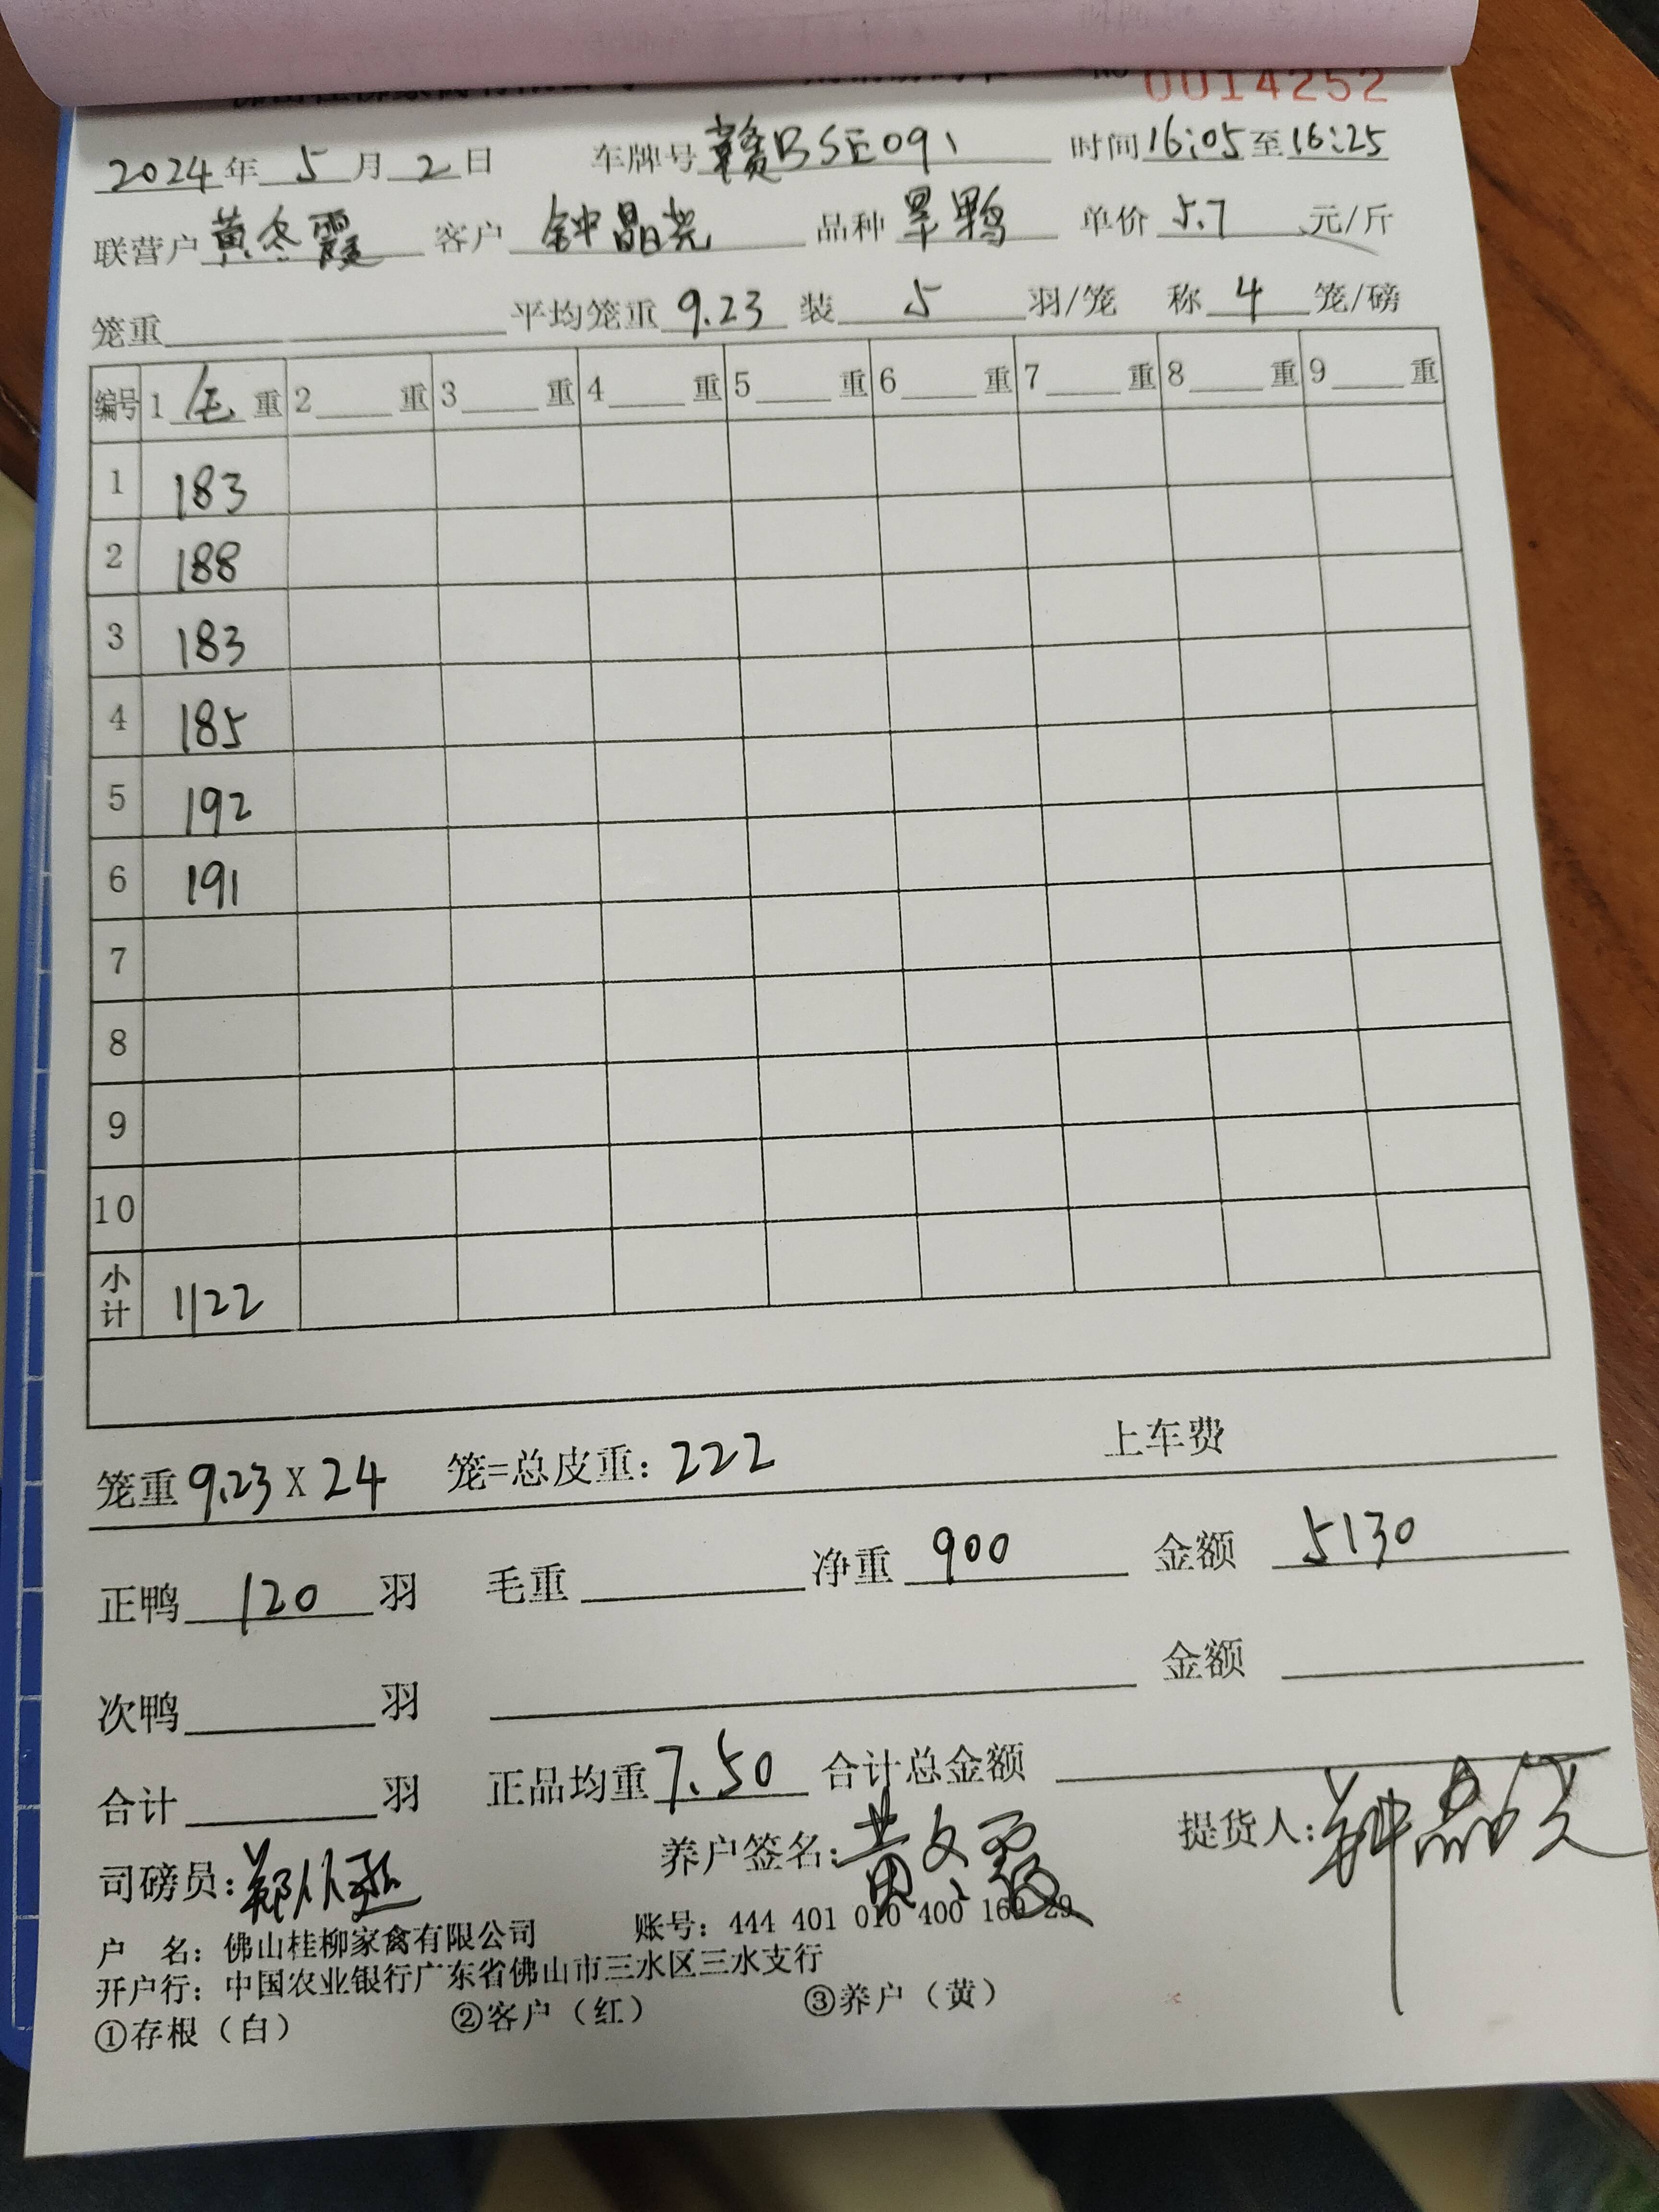 No 0014252
2024年 5月 2日 车牌号 赣BSE091 时间 16:05 至 16:25
联营户 黄冬霞 客户 钟晶尧 品种 旱鸭 单价 5.7 元/斤
笼重 平均笼重 9.23 装 5 羽/笼 称 4 笼/磅
编号 1 毛 重 2 重 3 重 4 重 5 重 6 重 7 重 8 重 9 重
1 183
2 188
3 183
4 185
5 192
6 191
7
8
9
10
小计 1122
笼重 9.23 X 24 笼=总皮重: 222 上车费
正鸭 120 羽 毛重 净重 900 金额 5130
次鸭 羽 金额
合计 羽 正品均重 7.50 合计总金额
司磅员: 养户签名: 黄冬霞 提货人: 钟晶尧
户 名: 佛山桂柳家禽有限公司 账号: 444 401 010 400 160 29
开户行: 中国农业银行广东省佛山市三水区三水支行
①存根(白) ②客户(红) ③养户(黄)